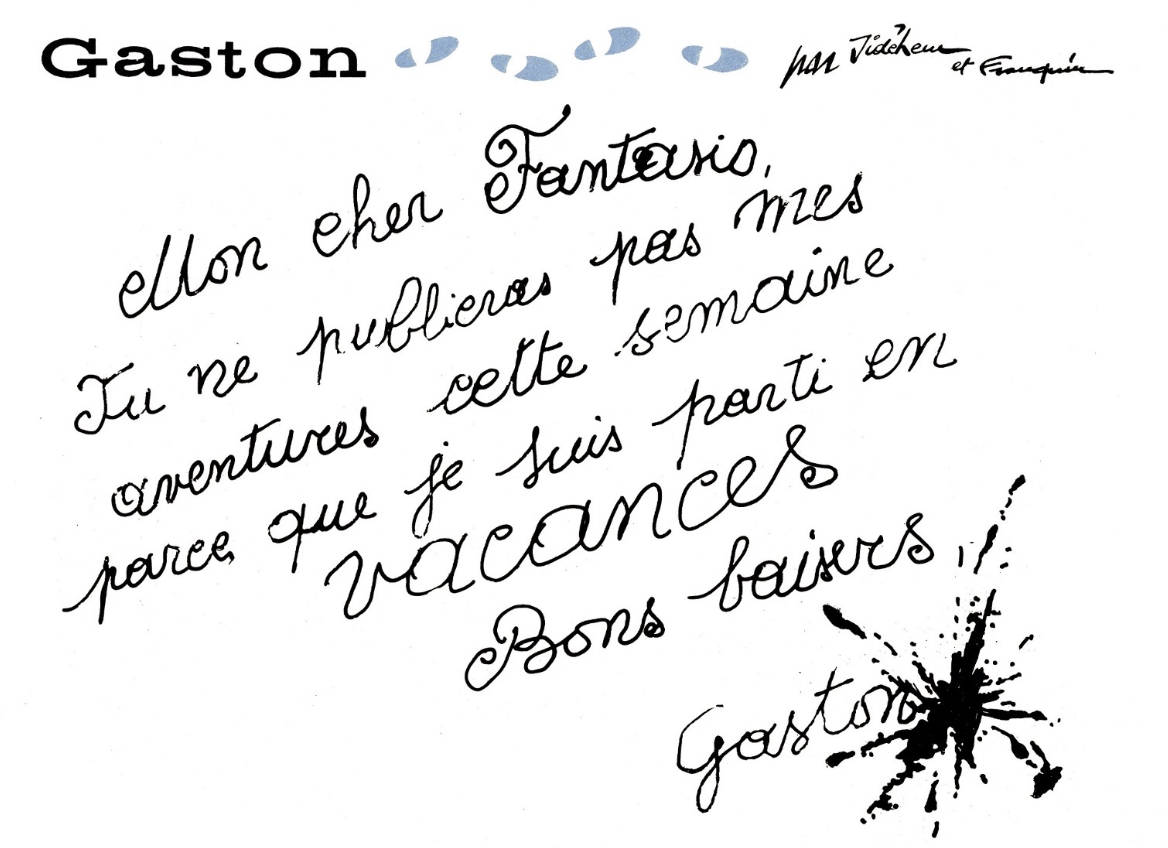 Gaston par Jidéhem et Franquin
Mon cher Fantasio,
Tu ne publieras pas mes
aventures cette semaine
parce que je suis parti en
vacances
Bons baisers,
Gaston